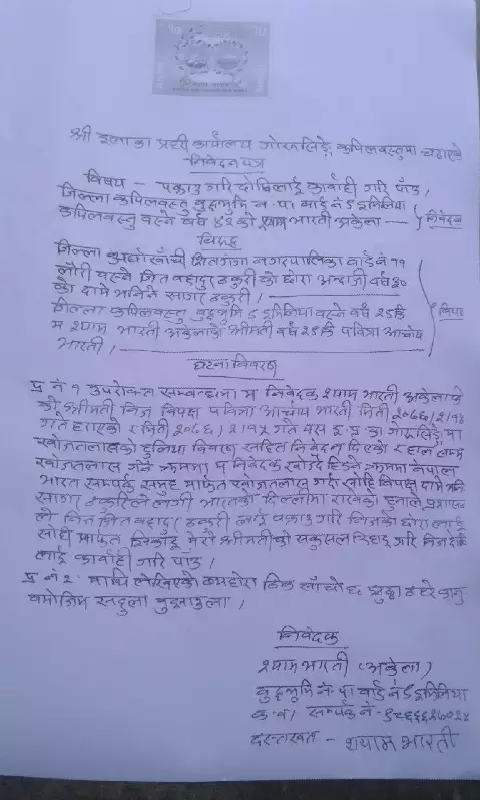 श्री इलाका प्रहरी कार्यालय गोरुसिङ्गे कपिलवस्तुमा चढाएको
निवेदनपत्र
विषय - पक्राउ गरि दोषिलाई कार्वाही गरि पाँउ ।
जिल्ला कपिलवस्तु बुद्धभुमि न.पा वार्ड नं ८ इमिलिया
कपिलवस्तु वस्ने वर्ष ४२ को श्याम भारती अकेला — निवेदक
विरुद्ध
जिल्ला अर्घाखाँची शितगंगा नगरपालिका वार्ड नं ११
वस्ने जित वहादुर ठकुरी को छोरा अन्दाजी वर्ष ३०
को दामे भनिने सागर ठकुरी ।
जिल्ला कपिलवस्तु बुद्धभुमि ८ इमिलिया वस्ने वर्ष २८ कि
म श्याम भारती अकेलाको श्रीमती वर्ष २८ कि पवित्रा आचार्य
भारती । विपक्षी
घटना विवरण
प्र नं १ उपरोक्त सम्वन्धमा म निवेदक श्याम भारती अकेला
की श्रीमती निज विपक्ष पवित्रा आचार्य भारती मिती २०७६/२/१४
गते हराएको र मिती २०७६/२/१५ गते यस इ.प्र.का गोरुसिङ्गेमा
खोजतलासको हुलिया विवरण सहित निवेदन दिएको र हाल सम्म
खोजतलास गर्ने क्रममा म निवेदक खोज्दै हिड्ने क्रममा नेपाल
भारत सम्पर्क समुह मार्फत खोजतलास गर्दा सोहि विपक्ष दामे भनिने
सागर ठकुरीले लगी भारतको दिल्लीमा राखेको हुनाले
निज जित वहादुर ठकुरी लाई पक्राउ गरि निजको छोरा लाई
सोही मार्फत झिकाई मेरो श्रीमतीको सकुसल रिहाइ गरि निज
लाई कार्वाही गरि पाँउ ।
प्र नं २ - माथि लेखिएको व्यहोरा ठिक साँचो छ झुठ्ठा ठहरे कानुन
वमोजिम सहुला वुझाउला ।
निवेदक
श्याम भारती (अकेला)
बुद्धभुमि न.पा वार्ड नं ८ इमिलिया
क.व. सम्पर्क नं -
दस्तखत - श्याम भारती